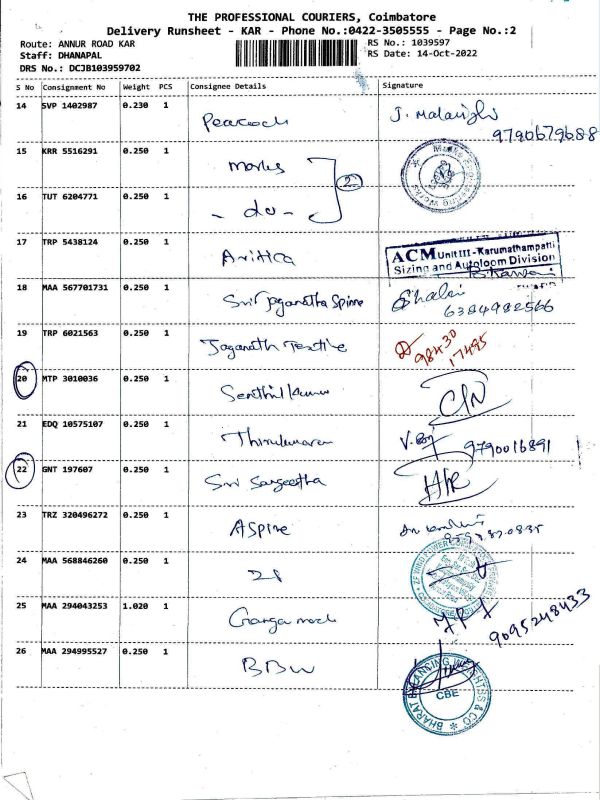 THE PROFESSIONAL COURIERS, Coimbatore
Delivery Runsheet - KAR - Phone No.:0422-3505555 - Page No.:2
Route: ANNUR ROAD KAR
RS No.: 1039597
Staff: DHANAPAL
RS Date: 14-Oct-2022
DRS No.: DCJB103959702
S No Consignment No Weight PCS Consignee Details Signature
14 SVP 1402987 0.230 1 Peacock
9790679688
15 KRR 5516291 0.250 1
2
16 TUT 6204771 0.250 1 - do -
17 TRP 5438124 0.250 1
ACM Unit III - Karumathampatti
Sizing and Autoloom Division
18 MAA 567701731 0.250 1 Sri Jaganatha Spine
6384982566
19 TRP 6021563 0.250 1 Jaganath Textile
98430
17495
20 MTP 3010036 0.250 1 Senthil Kumar
21 EDQ 10575107 0.250 1
9790016891
22 GNT 197607 0.250 1 Sri Sangeetha
23 TRZ 320496272 0.250 1 Aspire
24 MAA 568846260 0.250 1
25 MAA 294043253 1.020 1 Ganga
9095248433
26 MAA 294995527 0.250 1 BBW
BHARAT BALANCING WEIGHTSS & CO
CBE